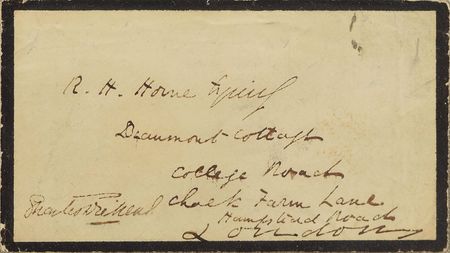 R. H. Horne Esquire
Beaumont Cottage
College Road
Chalk Farm Lane
Hampstead Road
London